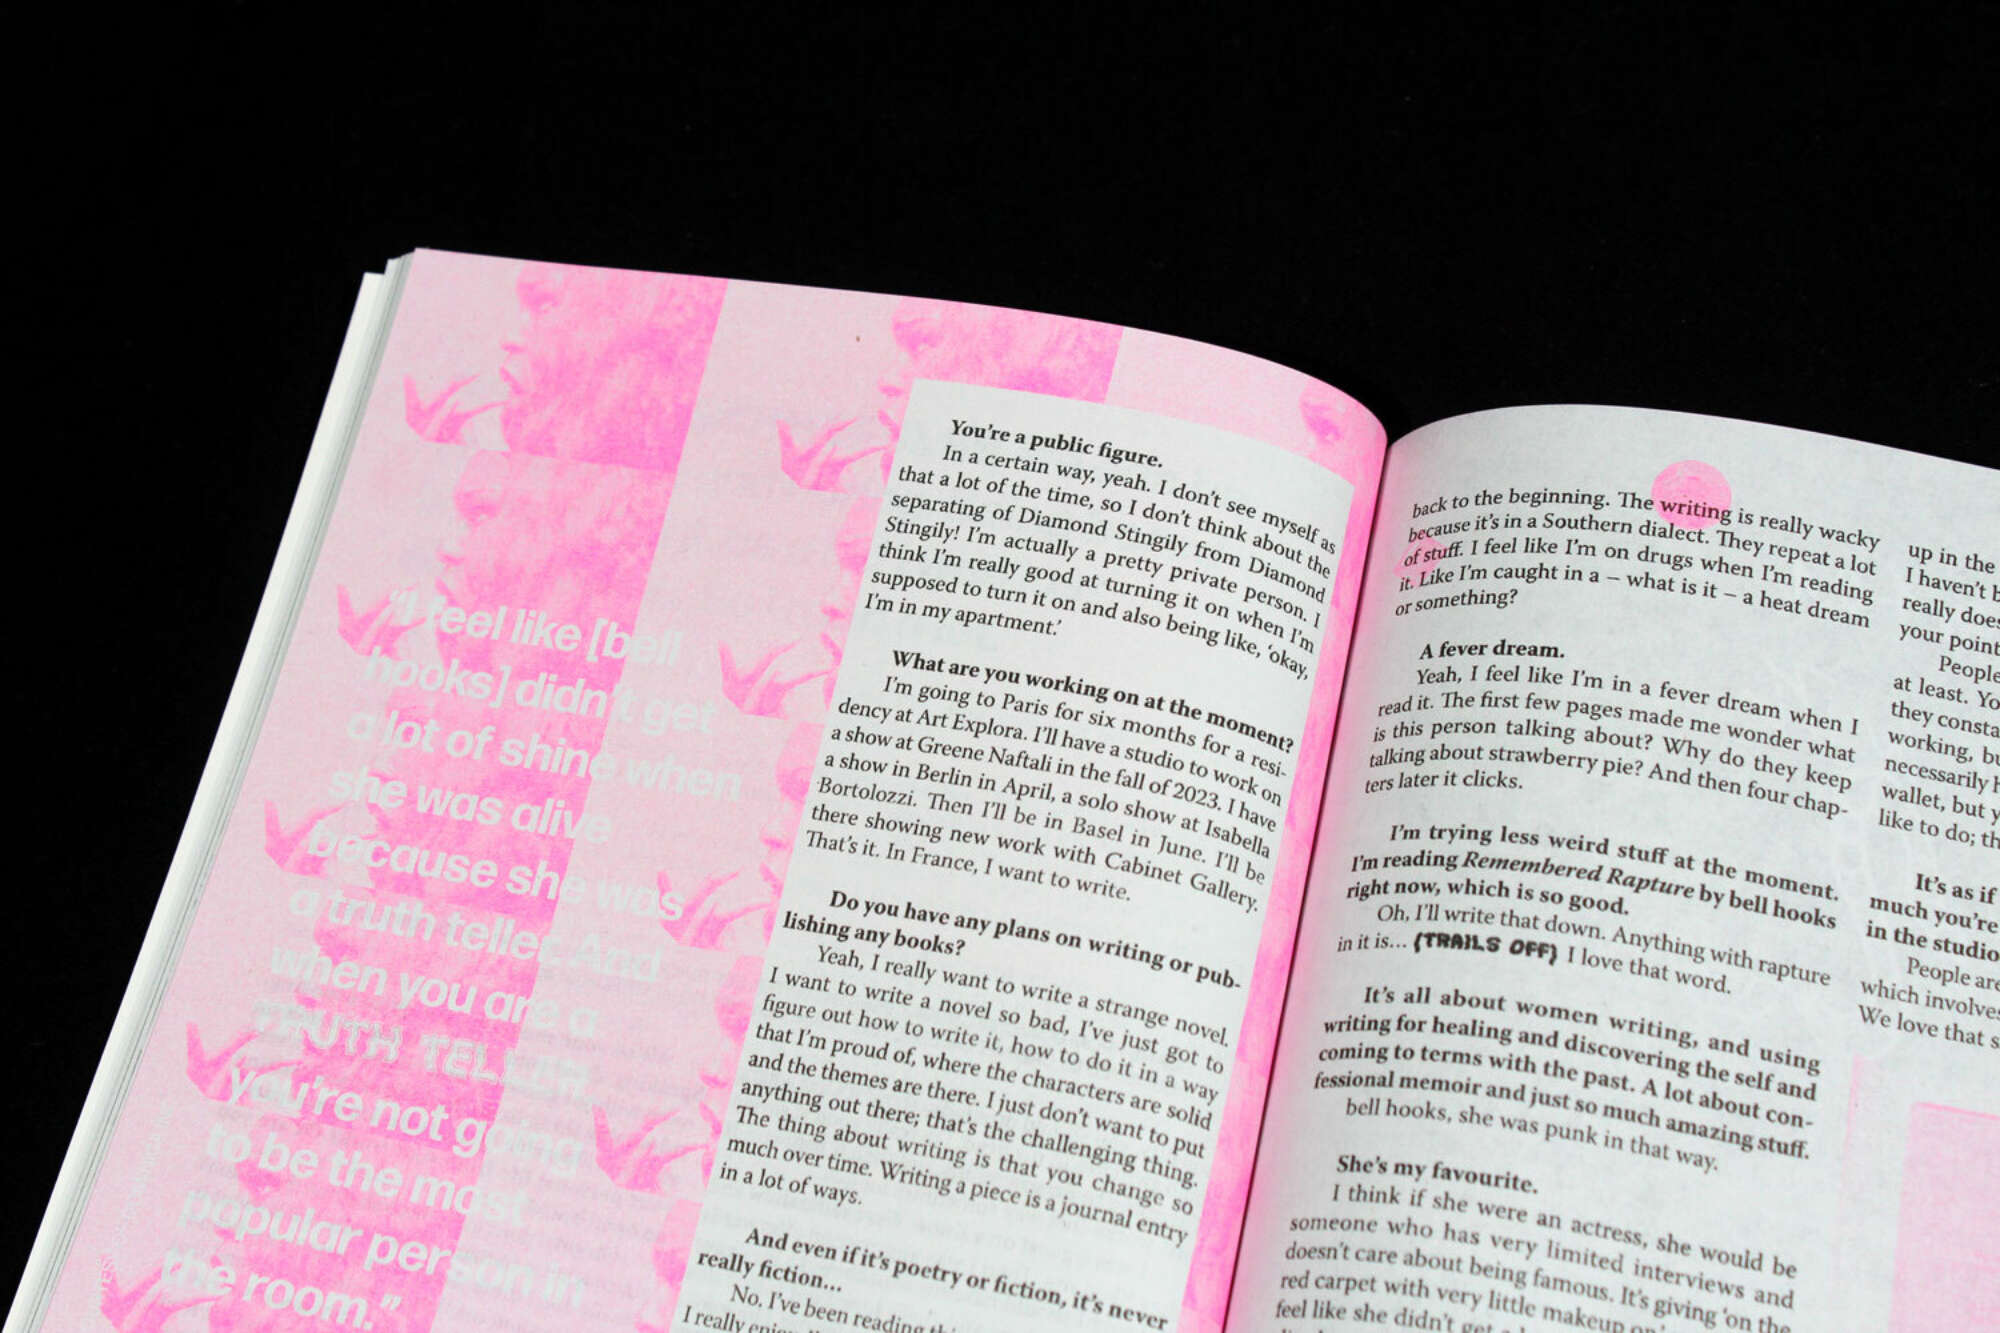 “I feel like [bell
hooks] didn’t get
a lot of shine when
she was alive
because she was
a truth teller. And
when you are a
TRUTH TELLER
you’re not going
to be the most
popular person in
the room.”
You’re a public figure.
In a certain way, yeah. I don’t see myself as
that a lot of the time, so I don’t think about the
separating of Diamond Stingily from Diamond
Stingily! I’m actually a pretty private person. I
think I’m really good at turning it on when I’m
supposed to turn it on and also being like, ‘okay,
I’m in my apartment.’
What are you working on at the moment?
I’m going to Paris for six months for a resi-
dency at Art Explora. I’ll have a studio to work on
a show at Greene Naftali in the fall of 2023. I have
a show in Berlin in April, a solo show at Isabella
Bortolozzi. Then I’ll be in Basel in June. I’ll be
there showing new work with Cabinet Gallery.
That’s it. In France, I want to write.
Do you have any plans on writing or pub-
lishing any books?
Yeah, I really want to write a strange novel.
I want to write a novel so bad, I’ve just got to
figure out how to write it, how to do it in a way
that I’m proud of, where the characters are solid
and the themes are there. I just don’t want to put
anything out there; that’s the challenging thing.
The thing about writing is that you change so
much over time. Writing a piece is a journal entry
in a lot of ways.
And even if it’s poetry or fiction, it’s never
really fiction…
No. I’ve been reading
I really
back to the beginning. The writing is really wacky
because it’s in a Southern dialect. They repeat a lot
of stuff. I feel like I’m on drugs when I’m reading
it. Like I’m caught in a – what is it – a heat dream
or something?
A fever dream.
Yeah, I feel like I’m in a fever dream when I
read it. The first few pages made me wonder what
is this person talking about? Why do they keep
talking about strawberry pie? And then four chap-
ters later it clicks.
I’m trying less weird stuff at the moment.
I’m reading Remembered Rapture by bell hooks
right now, which is so good.
Oh, I’ll write that down. Anything with rapture
in it is… (TRAILS OFF) I love that word.
It’s all about women writing, and using
writing for healing and discovering the self and
coming to terms with the past. A lot about con-
fessional memoir and just so much amazing stuff.
bell hooks, she was punk in that way.
She’s my favourite.
I think if she were an actress, she would be
someone who has very limited interviews and
doesn’t care about being famous. It’s giving ‘on the
red carpet with very little makeup on’.
feel like she didn’t get a
up in the
I haven’t
really
your point
People
at least.
they
working,
necessarily
wallet, but
like to do;
It’s as if
much you’re
in the studio
People are
which involves
We love that